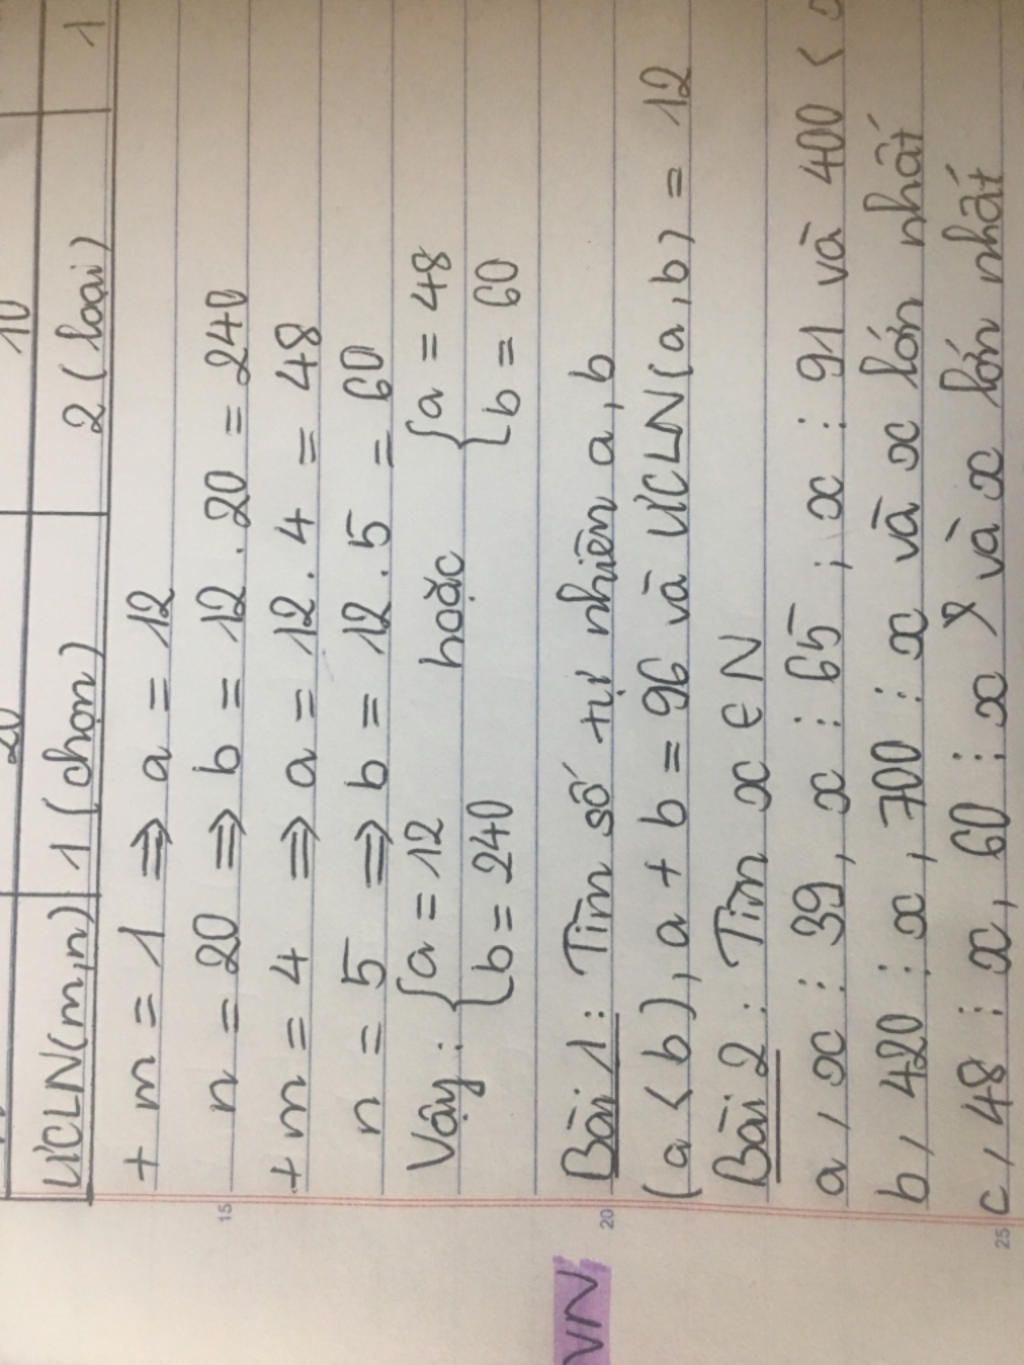 20 10
ƯCLN(m,n) 1 (chọn) 2 (loại) 1
+ m = 1 ⇒ a = 12
n = 20 ⇒ b = 12 . 20 = 240
+ m = 4 ⇒ a = 12 . 4 = 48
n = 5 ⇒ b = 12 . 5 = 60
Vậy : { a = 12 hoặc { a = 48
{ b = 240 { b = 60
VN Bài 1 : Tìm số tự nhiên a, b
(a < b), a + b = 96 và ƯCLN(a, b) = 12
Bài 2 : Tìm x ∈ N
a, x ⋮ 39, x ⋮ 65 ; x ⋮ 91 và 400 <
b, 420 ⋮ x, 700 ⋮ x và x lớn nhất
c, 48 ⋮ x, 60 ⋮ x và x lớn nhất
15
20
25